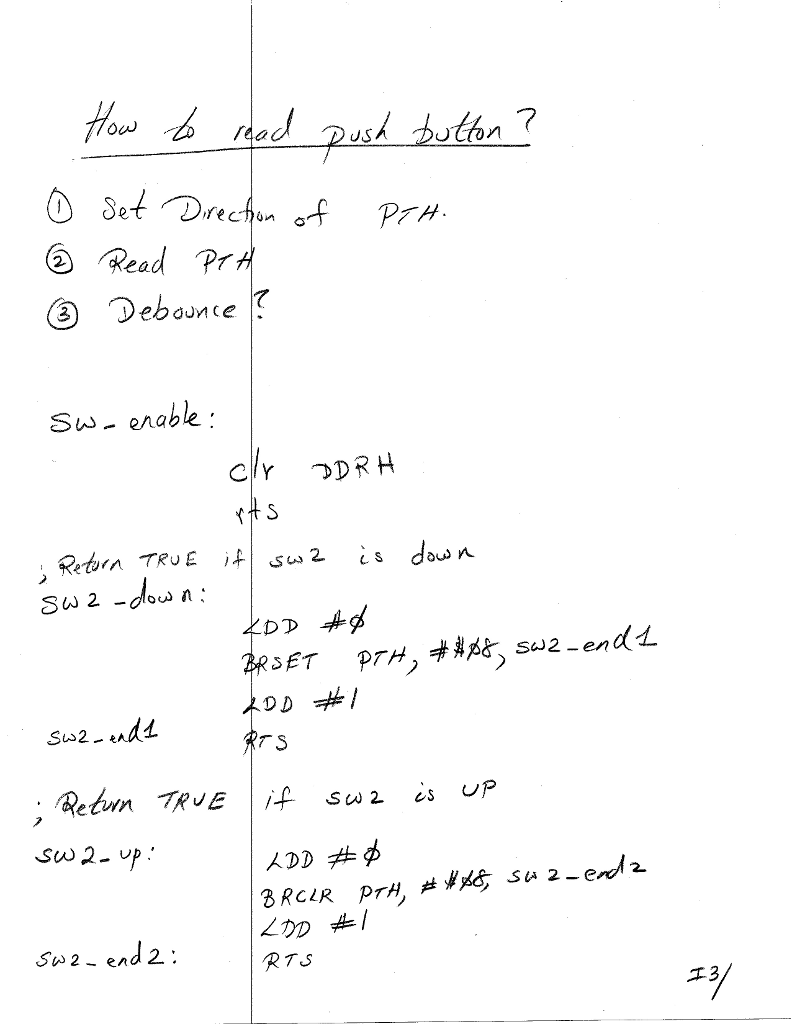 How to read push button?
① Set Direction of PTH.
② Read PTH
③ Debounce?
SW_enable:
clr DDRH
rts
; Return TRUE if sw2 is down
SW2_down:
LDD #0
BRSET PTH, #$08, sw2_end1
LDD #1
sw2_end1 RTS
; Return TRUE if sw2 is UP
sw2_up: LDD #0
BRCLR PTH, #$08, sw2_end2
LDD #1
sw2_end2: RTS
I3/